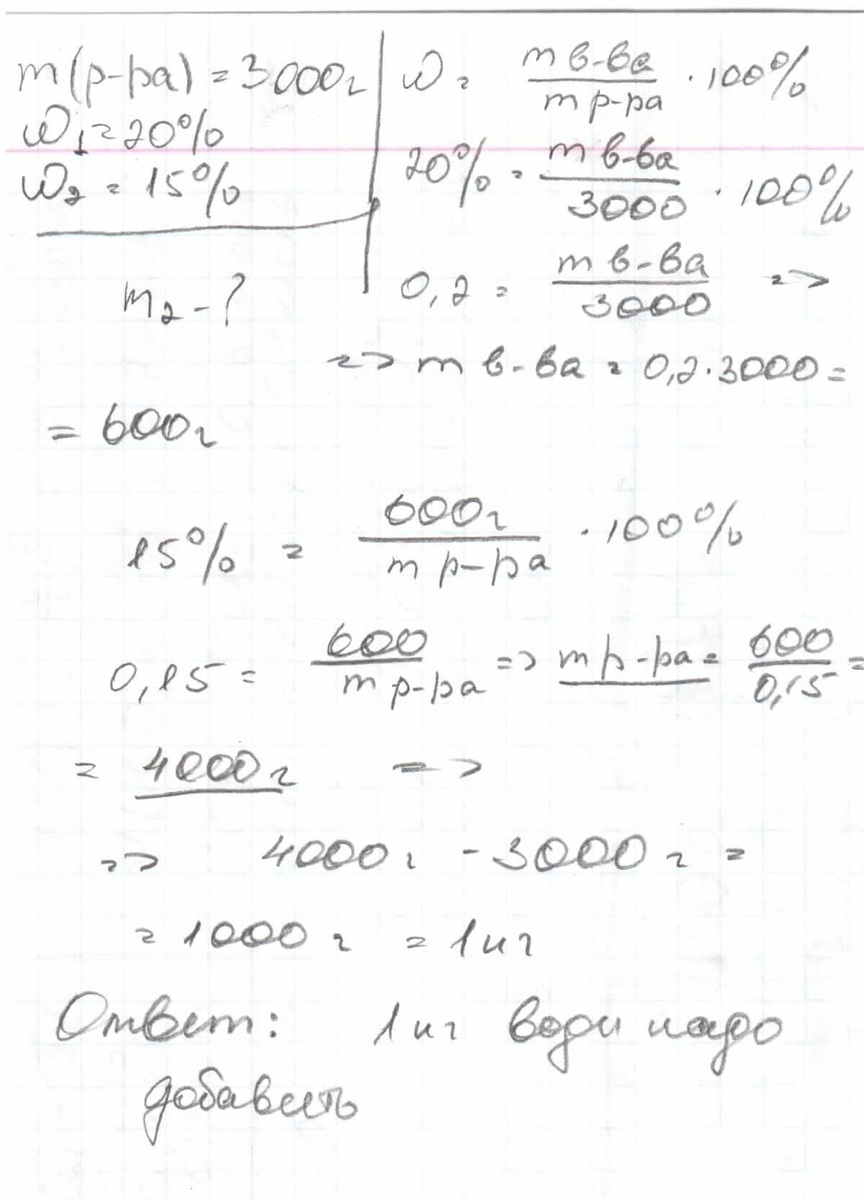 m(р-ра) = 3000г
ω1 = 20%
ω2 = 15%
m2 - ?
ω = m в-ва / m р-ра · 100%
20% = m в-ва / 3000 · 100%
0,2 = m в-ва / 3000 =>
=> m в-ва = 0,2·3000 =
= 600г
15% = 600г / m р-ра · 100%
0,15 = 600 / m р-ра => m р-ра = 600 / 0,15 =
= 4000г =>
=> 4000г - 3000г =
= 1000г = 1кг
Ответ: 1кг води надо
добавить